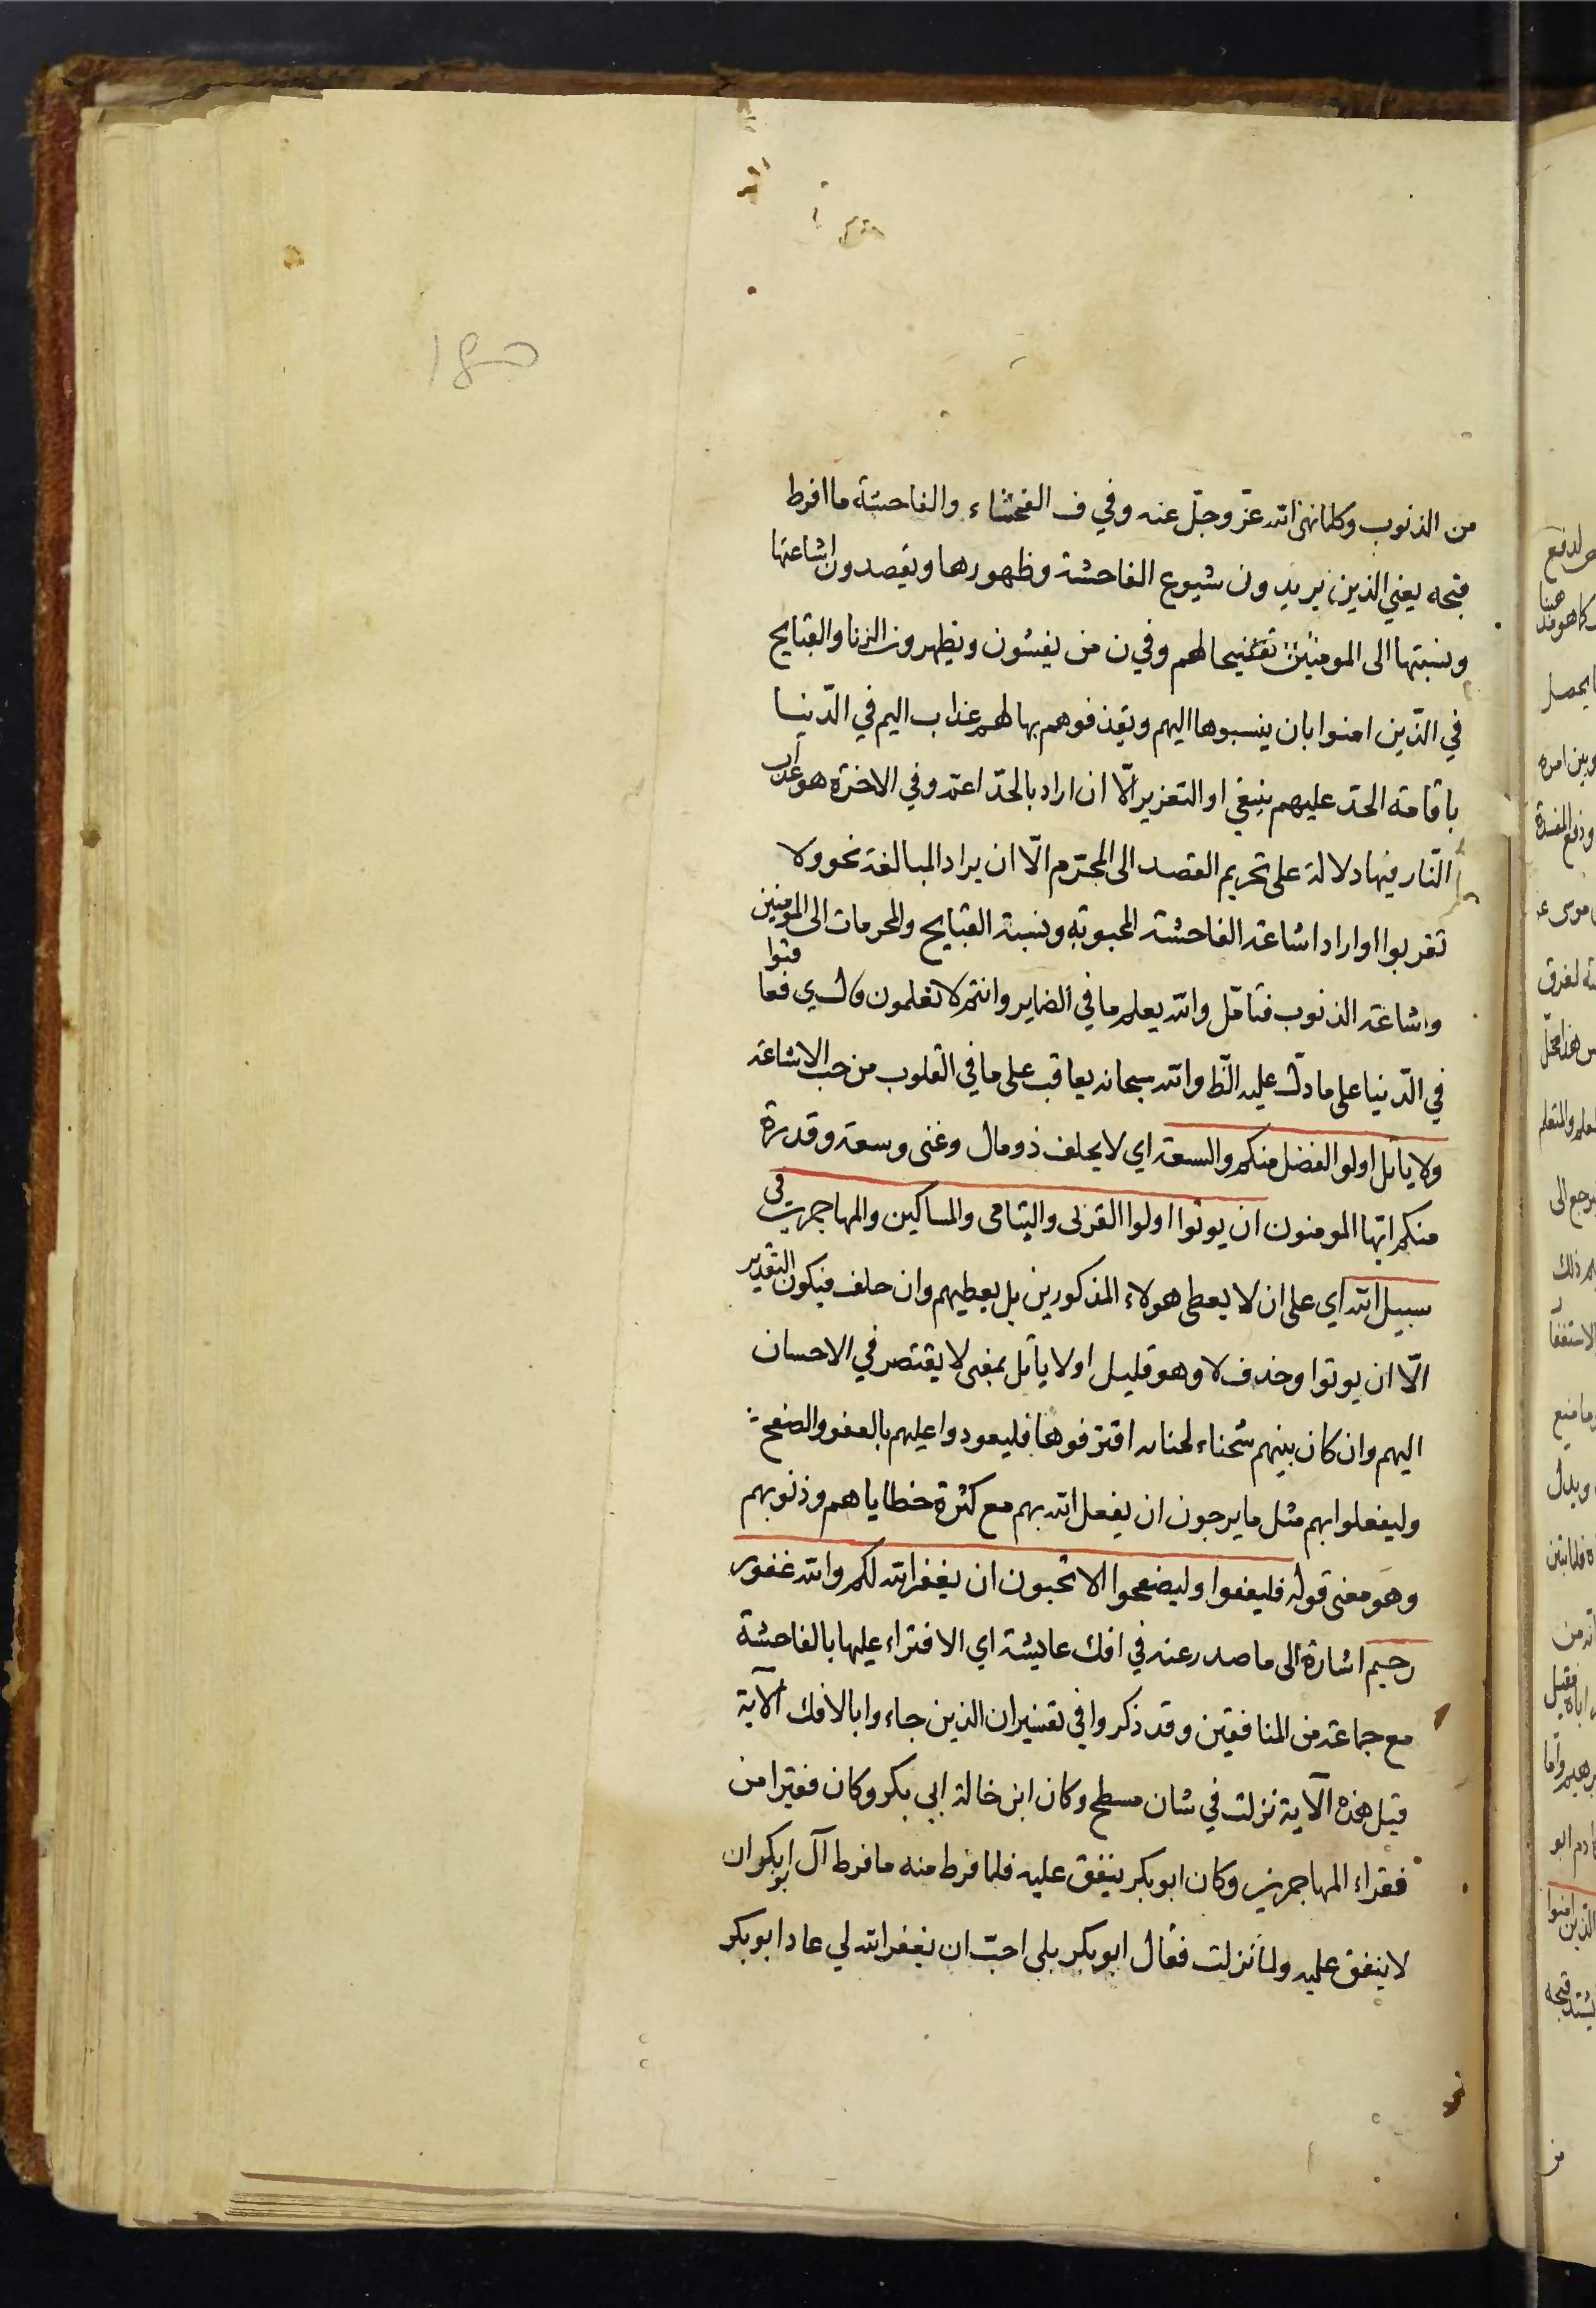 من الذنوب وكلما نهى الله عزّ وجلّ عنه وفي ف الفحشاء والفاحشة ما افرط
قبحه يعني الذين يريدون شيوع الفاحشة وظهورها ويقصدون اشاعتها
ونسبتها الى المومنين تفضيحا لهم وفي ن من يفشون ويظهرون الزنا والقبايح
في الّذين امنوا بان ينسبوها اليهم ويقذفوهم بها لهم عذاب اليم في الدّنيا
باقامة الحدّ عليهم ينبغي او التعزير الّا ان اراد بالحدّ اعمّ وفي الاخرة هو عذاب
النّار فيها دلالة على تحريم القصد الى المحرّم الّا ان يراد المبالغة نحو ولا
تقربوا او اراد اشاعة الفاحشة المحبوبة ونسبة القبايح والمحرمات الى المؤمنين
واشاعة الذنوب فتامّل والله يعلم ما في الضماير وانتم لا تعلمون قال ي فعاقبوا
في الدّنيا على ما دلّ عليه الظّ والله سبحانه يعاقب على ما في القلوب من حب الاشاعة
ولا يأتل اولوا الفضل منكم والسعة اي لا يحلف ذو مال وغنى وسعة وقدرة
منكم ايها المومنون ان يوتوا اولوا القربى واليتامى والمساكين والمهاجرين في
سبيل الله اي على ان لا يعطى هولاء المذكورين بل يعطيهم وان حلف فيكون التقدير
الّا ان يوتوا وحذف لا وهو قليل او لا يأتل بمعنى لا يقتصر في الاحسان
اليهم وان كان بينهم شحناء لجناية اقترفوها فليعودوا عليهم بالعفو والصفح
وليفعلوا بهم مثل ما يرجون ان يفعل الله بهم مع كثرة خطاياهم وذنوبهم
وهو معنى قوله فليعفوا وليصفحوا الا تحبون ان يغفر الله لكم والله غفور
رحيم اشارة الى ما صدر عنه في افك عايشة اي الافتراء عليها بالفاحشة
مع جماعة من المنافقين وقد ذكروا في تفسير ان الذين جاءوا بالافك الآية
قيل هذه الآية نزلت في شان مسطح وكان ابن خالة ابي بكر وكان فقيرا من
فقراء المهاجرين وكان ابو بكر ينفق عليه فلما فرط منه ما فرط آل ابو بكر ان
لا ينفق عليه ولما نزلت فقال ابو بكر بلى احبّ ان يغفر الله لي عاد ابو بكر